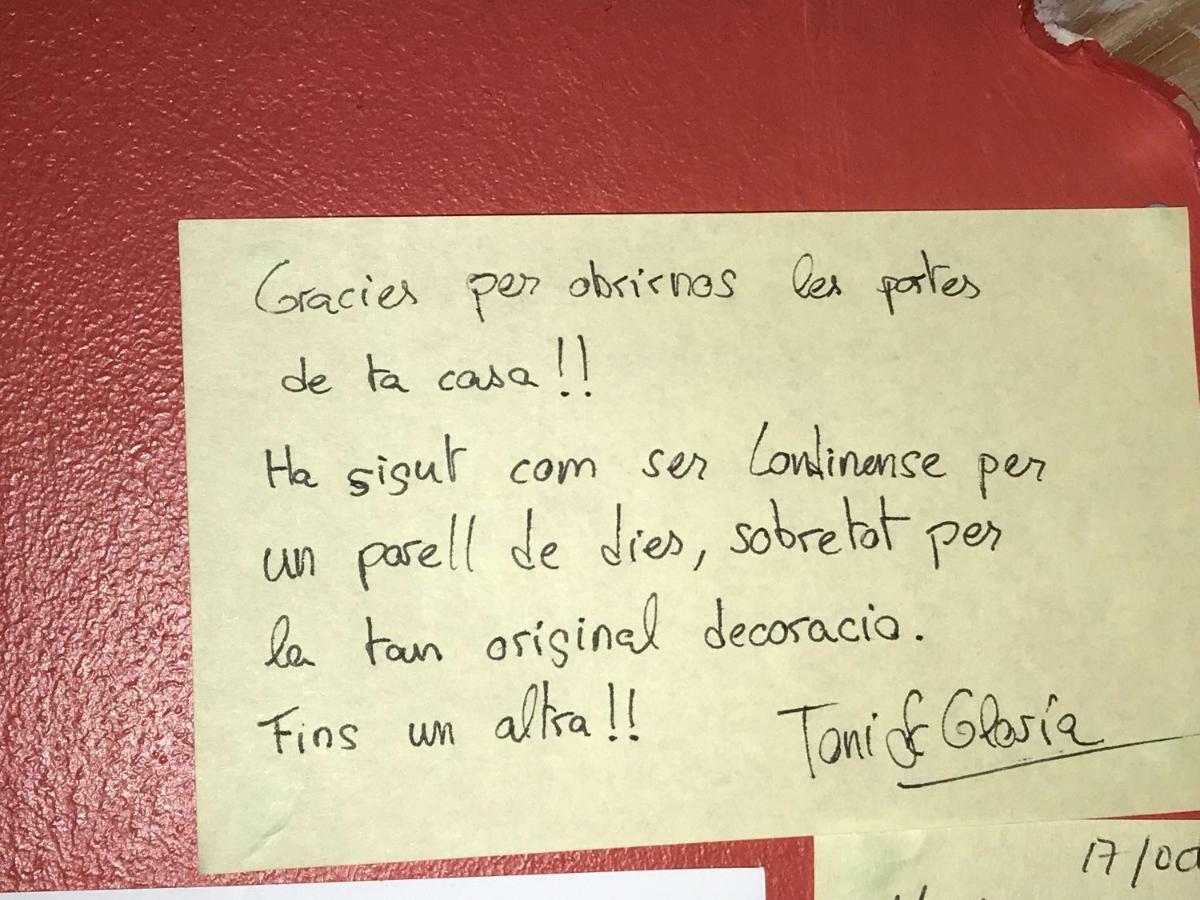 Gracies per obrirnos les portes
de ta casa!!
Ha sigut com ser Londinense per
un parell de dies, sobretot per
la tan original decoracio.
Fins un altra!!
Toni & Gloria
17/oc